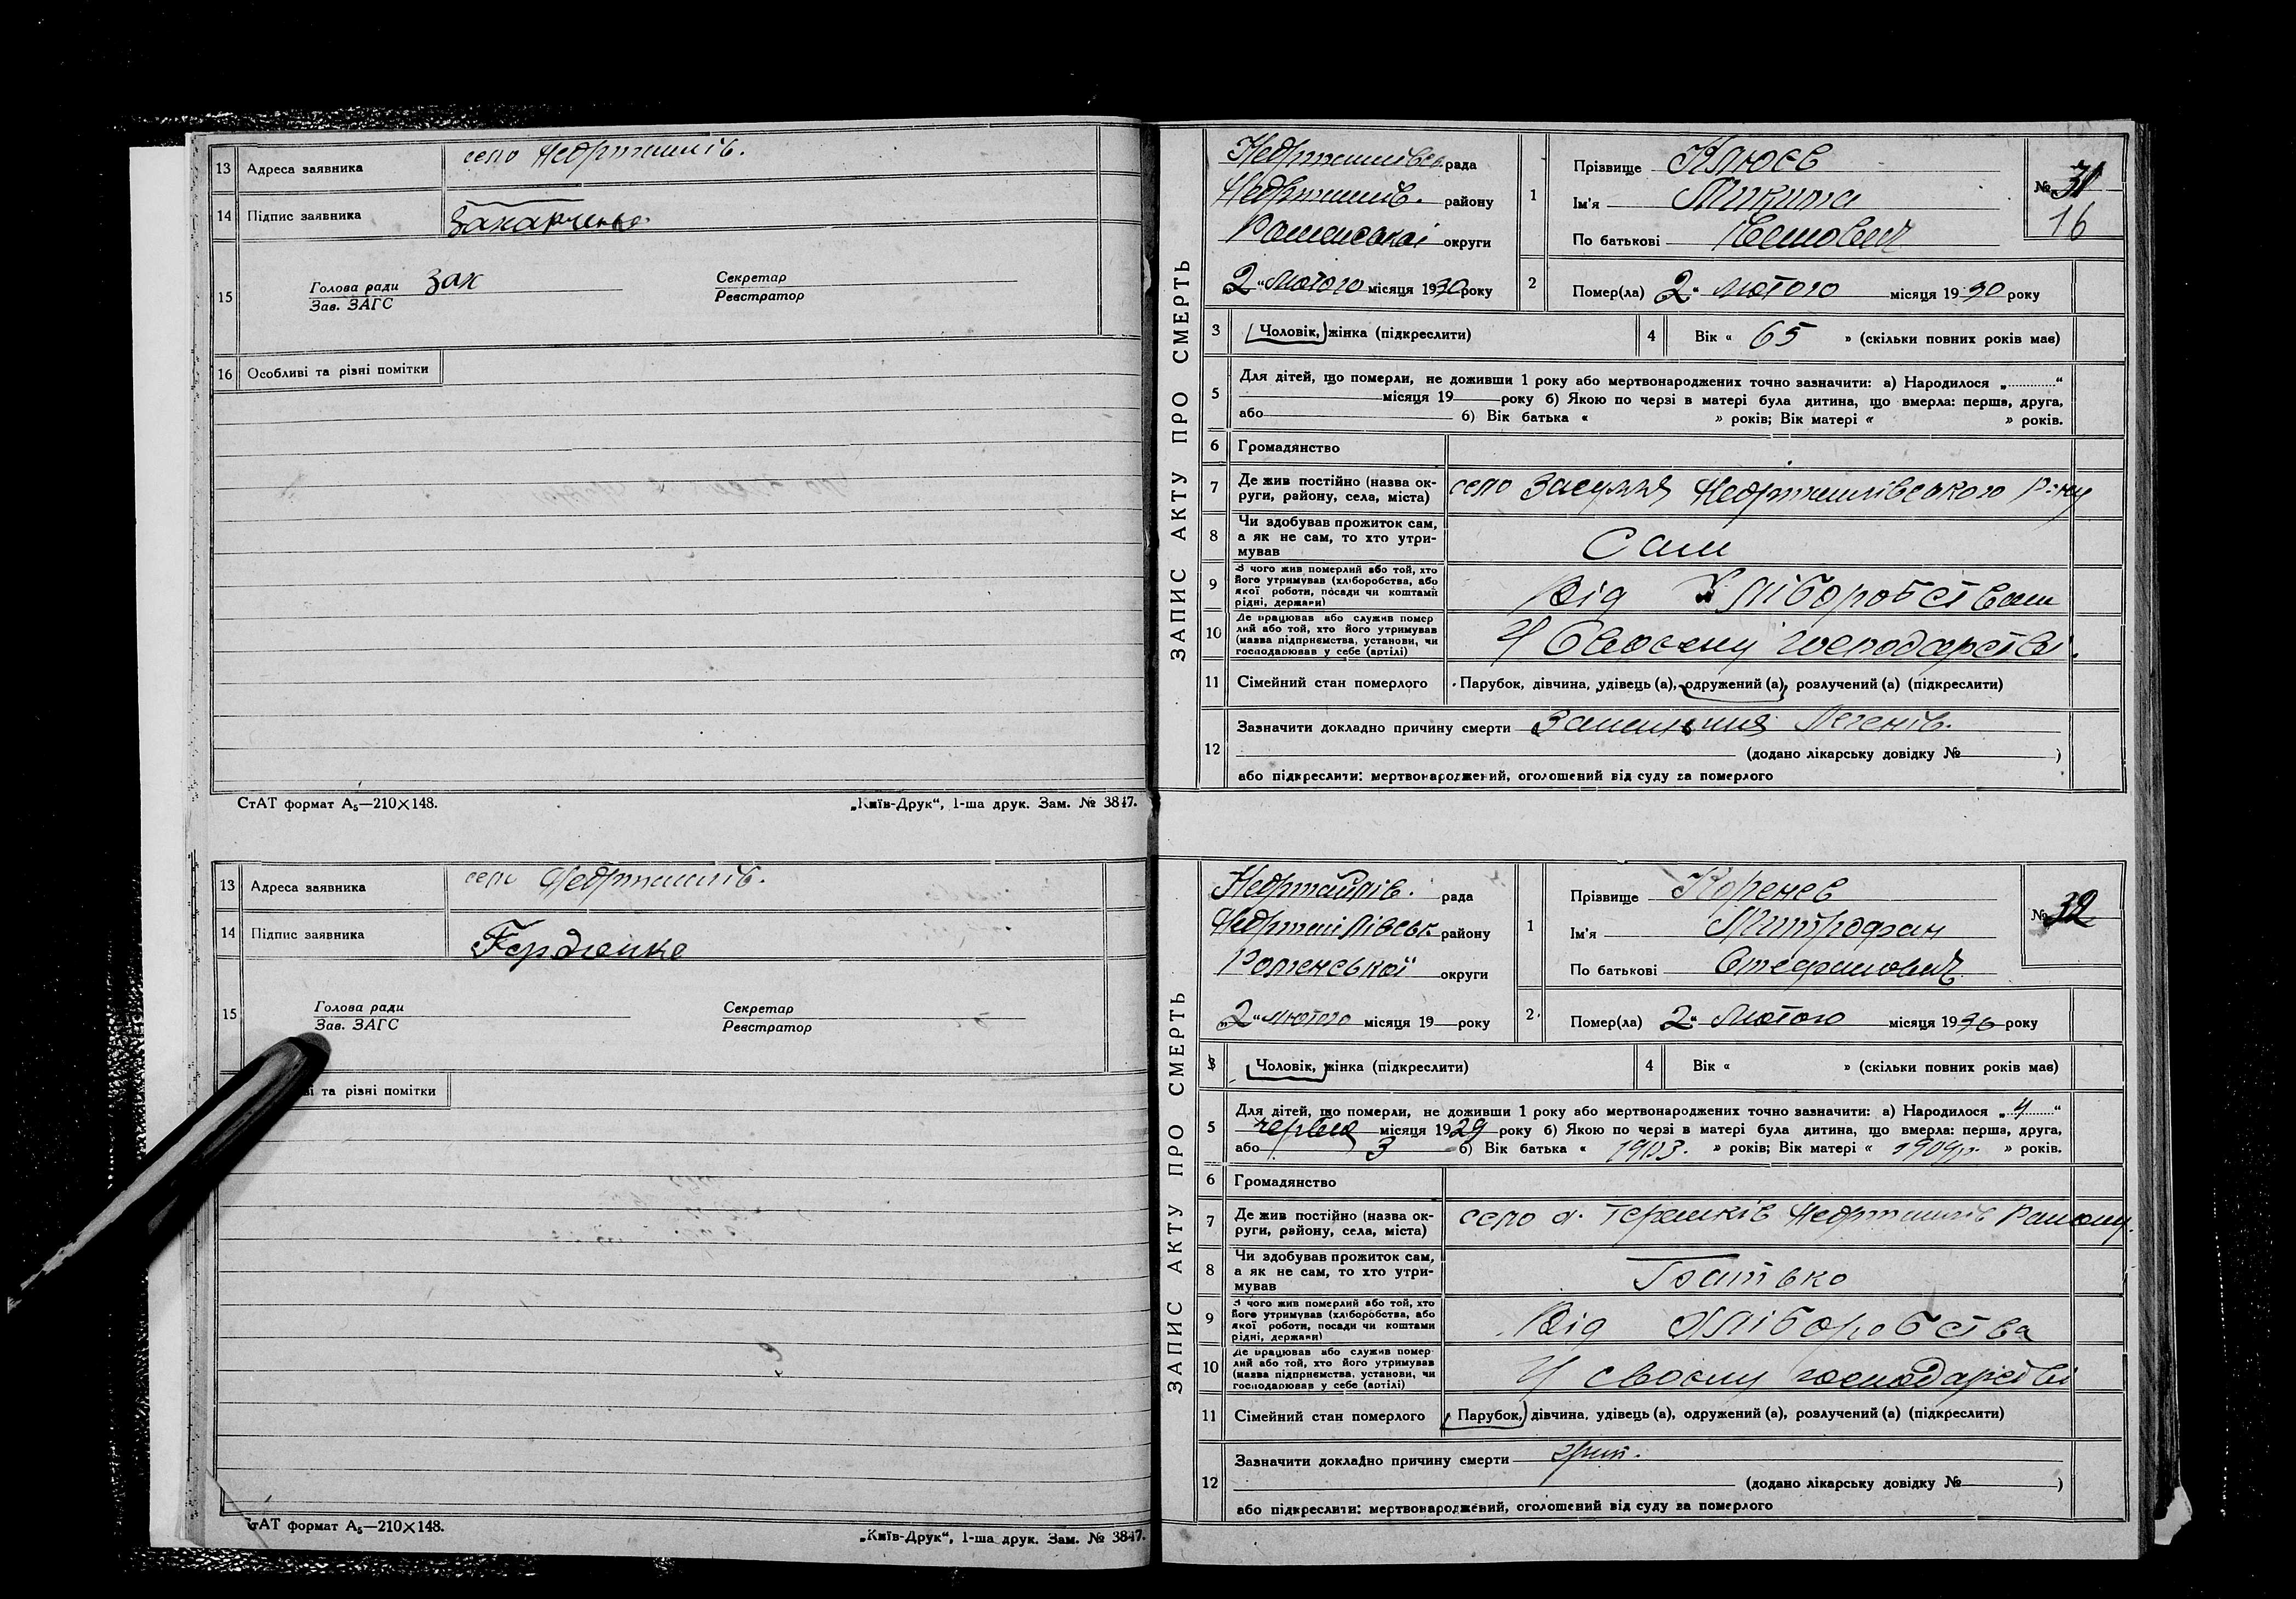 13 Адреса заявника село Недригайлів.
14 Підпис заявника Захарченко
15 Голова ради Зах Секретар
Зав. ЗАГС Реєстратор
16 Особливі та різні помітки
СтАТ формат А₅—210×148. „Київ-Друк“, 1-ша друк. Зам. № 3847.
13 Адреса заявника село Недригайлів.
14 Підпис заявника
15 Голова ради Секретар
Зав. ЗАГС Реєстратор
та різні помітки
СтАТ формат А₅—210×148. „Київ-Друк“, 1-ша друк. Зам. № 3847.
ЗАПИС АКТУ ПРО СМЕРТЬ
Недригайлівс. рада
Недригайлів. району
Роменської округи
2 “ Лютого місяця 1930 року
1 Прізвище Клюєв
Ім'я Микита
По батькові
№ 31
16
2 Помер(ла) 2 “ Лютого місяця 1930 року
3 Чоловік, жінка (підкреслити)
4 Вік « 65 » (скільки повних років має)
5 Для дітей, що померли, не доживши 1 року або мертвонароджених точно зазначити: а) Народилося „ “
місяця 19 року б) Якою по черзі в матері була дитина, що вмерла: перша, друга,
або б) Вік батька « » років; Вік матері « » років.
6 Громадянство
7 Де жив постійно (назва ок-
руги, району, села, міста) село Засулля Недригайлівського р-ну
8 Чи здобував прожиток сам,
а як не сам, то хто утри-
мував Сам
9 З чого жив померлий або той, хто
його утримував (хліборобства, або
якої роботи, посади чи коштами
рідні, держави) Від Хліборобствам
10 Де працював або служив помер
лий або той, хто його утримував
(назва підприємства, установи, чи
господарював у себе (артілі) У Своєму господарстві.
11 Сімейний стан померлого Парубок, дівчина, удівець (а), одружений (а), розлучений (а) (підкреслити)
12 Зазначити докладно причину смерти Запалення Легенів.
(додано лікарську довідку № )
або підкреслити: мертвонароджений, оголошений від суду за померлого
ЗАПИС АКТУ ПРО СМЕРТЬ
Недригайлів. рада
Недригайлівськ району
Роменської округи
2 “ Лютого місяця 19 року
1 Прізвище Коренєв
Ім'я Митрофан
По батькові Стефанович
№ 32
2 Помер(ла) 2 “ Лютого місяця 1930 року
3 Чоловік, жінка (підкреслити)
4 Вік « » (скільки повних років має)
5 Для дітей, що померли, не доживши 1 року або мертвонароджених точно зазначити: а) Народилося „ 4 “
червня місяця 1929 року б) Якою по черзі в матері була дитина, що вмерла: перша, друга,
або 3 б) Вік батька « 1903. » років; Вік матері « 1904р. » років.
6 Громадянство
7 Де жив постійно (назва ок-
руги, району, села, міста) село Недригайлів Району.
8 Чи здобував прожиток сам,
а як не сам, то хто утри-
мував Батько
9 З чого жив померлий або той, хто
його утримував (хліборобства, або
якої роботи, посади чи коштами
рідні, держави) Від Хліборобства
10 Де працював або служив помер-
лий або той, хто його утримував
(назва підприємства, установи, чи
господарював у себе (артілі) У своєму господарстві
11 Сімейний стан померлого Парубок, дівчина, удівець (а), одружений (а), розлучений (а) (підкреслити)
12 Зазначити докладно причину смерти грип.
(додано лікарську довідку № )
або підкреслити: мертвонароджений, оголошений від суду за померлого